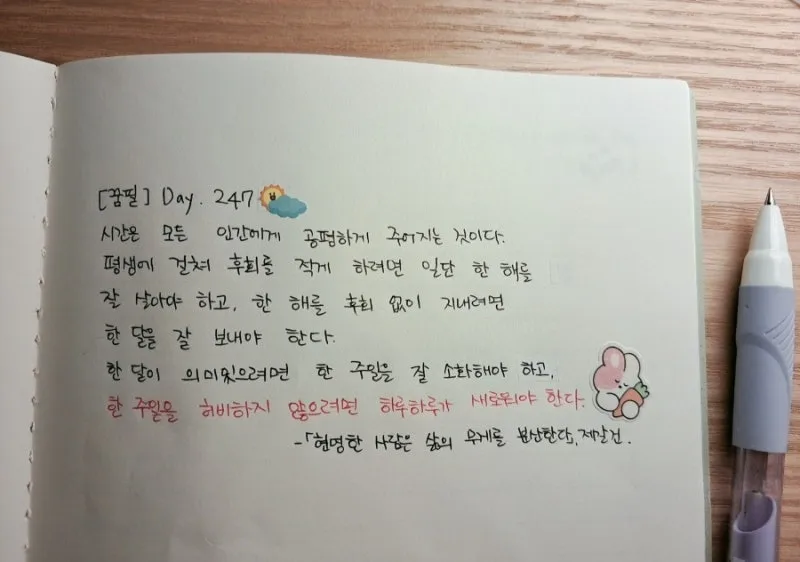 [꿈필] Day. 247
시간은 모든 인간에게 공평하게 주어지는 것이다.
평생에 걸쳐 후회를 적게 하려면 일단 한 해를
잘 살아야 하고, 한 해를 후회 없이 지내려면
한 달을 잘 보내야 한다.
한 달이 의미있으려면 한 주일을 잘 소화해야 하고,
한 주일을 허비하지 않으려면 하루하루가 새로워야 한다.
-「현명한 사람은 삶의 무게를 분산한다」, 제갈건.